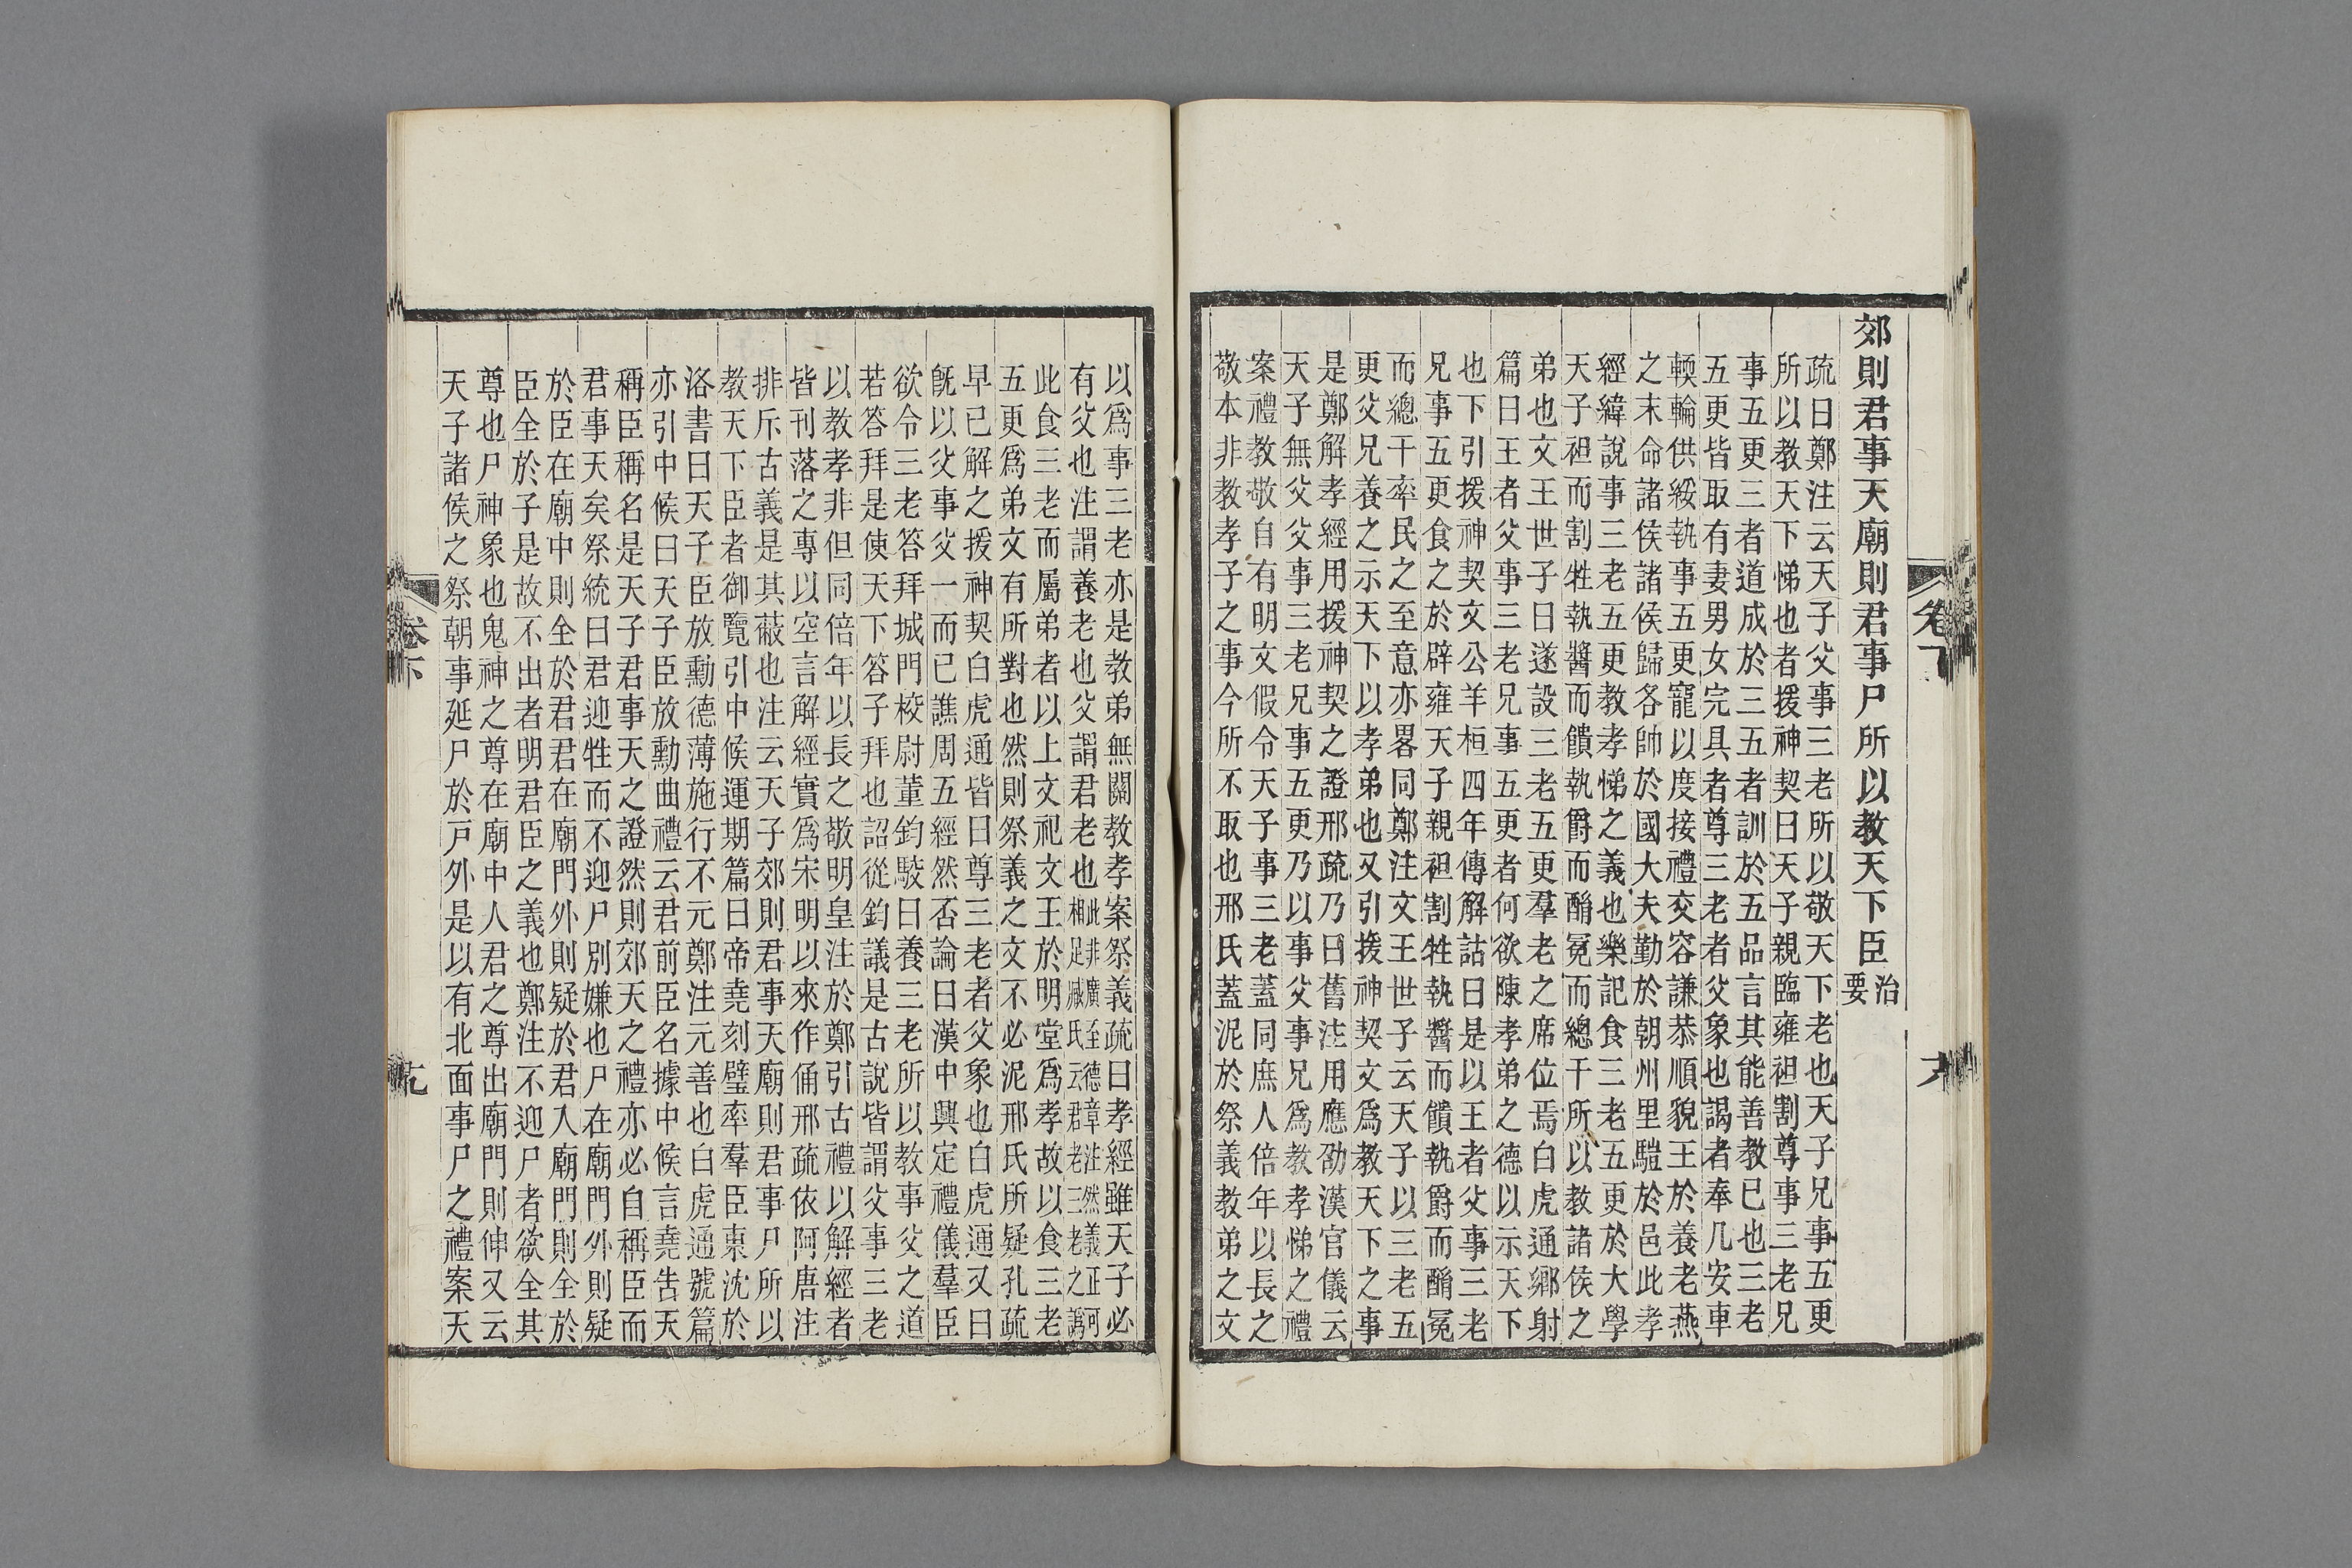 郊則君事天廟則君事尸所以教天下臣治要
疏曰鄭注云天子父事三老所以敬天下老也天子兄事五更
所以教天下悌也者援神契曰天子親臨雍袒割尊事三老兄
事五更三者道成於三五者訓於五品言其能善教已也三老
五更皆取有妻男女完具者尊三老者父象也謁者奉几安車
輭輪供綏執事五更寵以度接禮交容謙恭順貌王於養老燕
之末命諸侯諸侯歸各帥於國大夫勤於朝州里驖於邑此孝
經緯說事三老五更教孝悌之義也樂記食三老五更於大學
天子袒而割牲執醬而饋執爵而酳冕而總干所以教諸侯之
弟也文王世子曰遂設三老五更羣老之席位焉白虎通鄉射
篇曰王者父事三老兄事五更者何欲陳孝弟之德以示天下
也下引援神契文公羊桓四年傳解詁曰是以王者父事三老
兄事五更食之於辟雍天子親袒割牲執醬而饋執爵而酳冕
而總干率民之至意亦畧同鄭注文王世子云天子以三老五
更父兄養之示天下以孝弟也又引援神契文爲教天下之事
是鄭解孝經用援神契之證邢疏乃曰舊注用應劭漢官儀云
天子無父父事三老兄事五更乃以事父事兄爲教孝悌之禮
案禮教敬自有明文假令天子事三老蓋同庶人倍年以長之
敬本非教孝子之事今所不取也邢氏蓋泥於祭義教弟之文
以爲事三老亦是教弟無關教孝案祭義疏曰孝經雖天子必
有父也注謂養老也父謂君老也此非廣至德章注然義正可相足臧氏云君老三老之譌
此食三老而屬弟者以上文祀文王於明堂爲孝故以食三老
五更爲弟文有所對也然則祭義之文不必泥邢氏所疑孔疏
早已解之援神契白虎通皆曰尊三老者父象也白虎通又曰
旣以父事父一而已譙周五經然否論曰漢中興定禮儀羣臣
欲令三老答拜城門校尉董鈞駮曰養三老所以教事父之道
若答拜是使天下答子拜也詔從鈞議是古說皆謂父事三老
以教孝非但同倍年以長之敬明皇注於鄭引古禮以解經者
皆刊落之專以空言解經實爲宋明以來作俑邢疏依阿唐注
排斥古義是其蔽也注云天子郊則君事天廟則君事尸所以
教天下臣者御覽引中候運期篇曰帝堯刻璧率羣臣東沈於
洛書曰天子臣放勳德薄施行不元鄭注元善也白虎通號篇
亦引中候曰天子臣放勳曲禮云君前臣名據中候言堯告天
稱臣稱名是天子君事天之證然則郊天之禮亦必自稱臣而
君事天矣祭統曰君迎牲而不迎尸別嫌也尸在廟門外則疑
於臣在廟中則全於君君在廟門外則疑於君入廟門則全於
臣全於子是故不出者明君臣之義也鄭注不迎尸者欲全其
尊也尸神象也鬼神之尊在廟中人君之尊出廟門則伸又云
天子諸侯之祭朝事延尸於戸外是以有北面事尸之禮案天
卷下